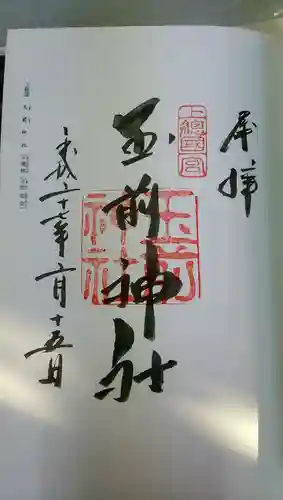 奉拝
上總國一宮
玉前神社
玉前神社
平成二十七年二月十五日